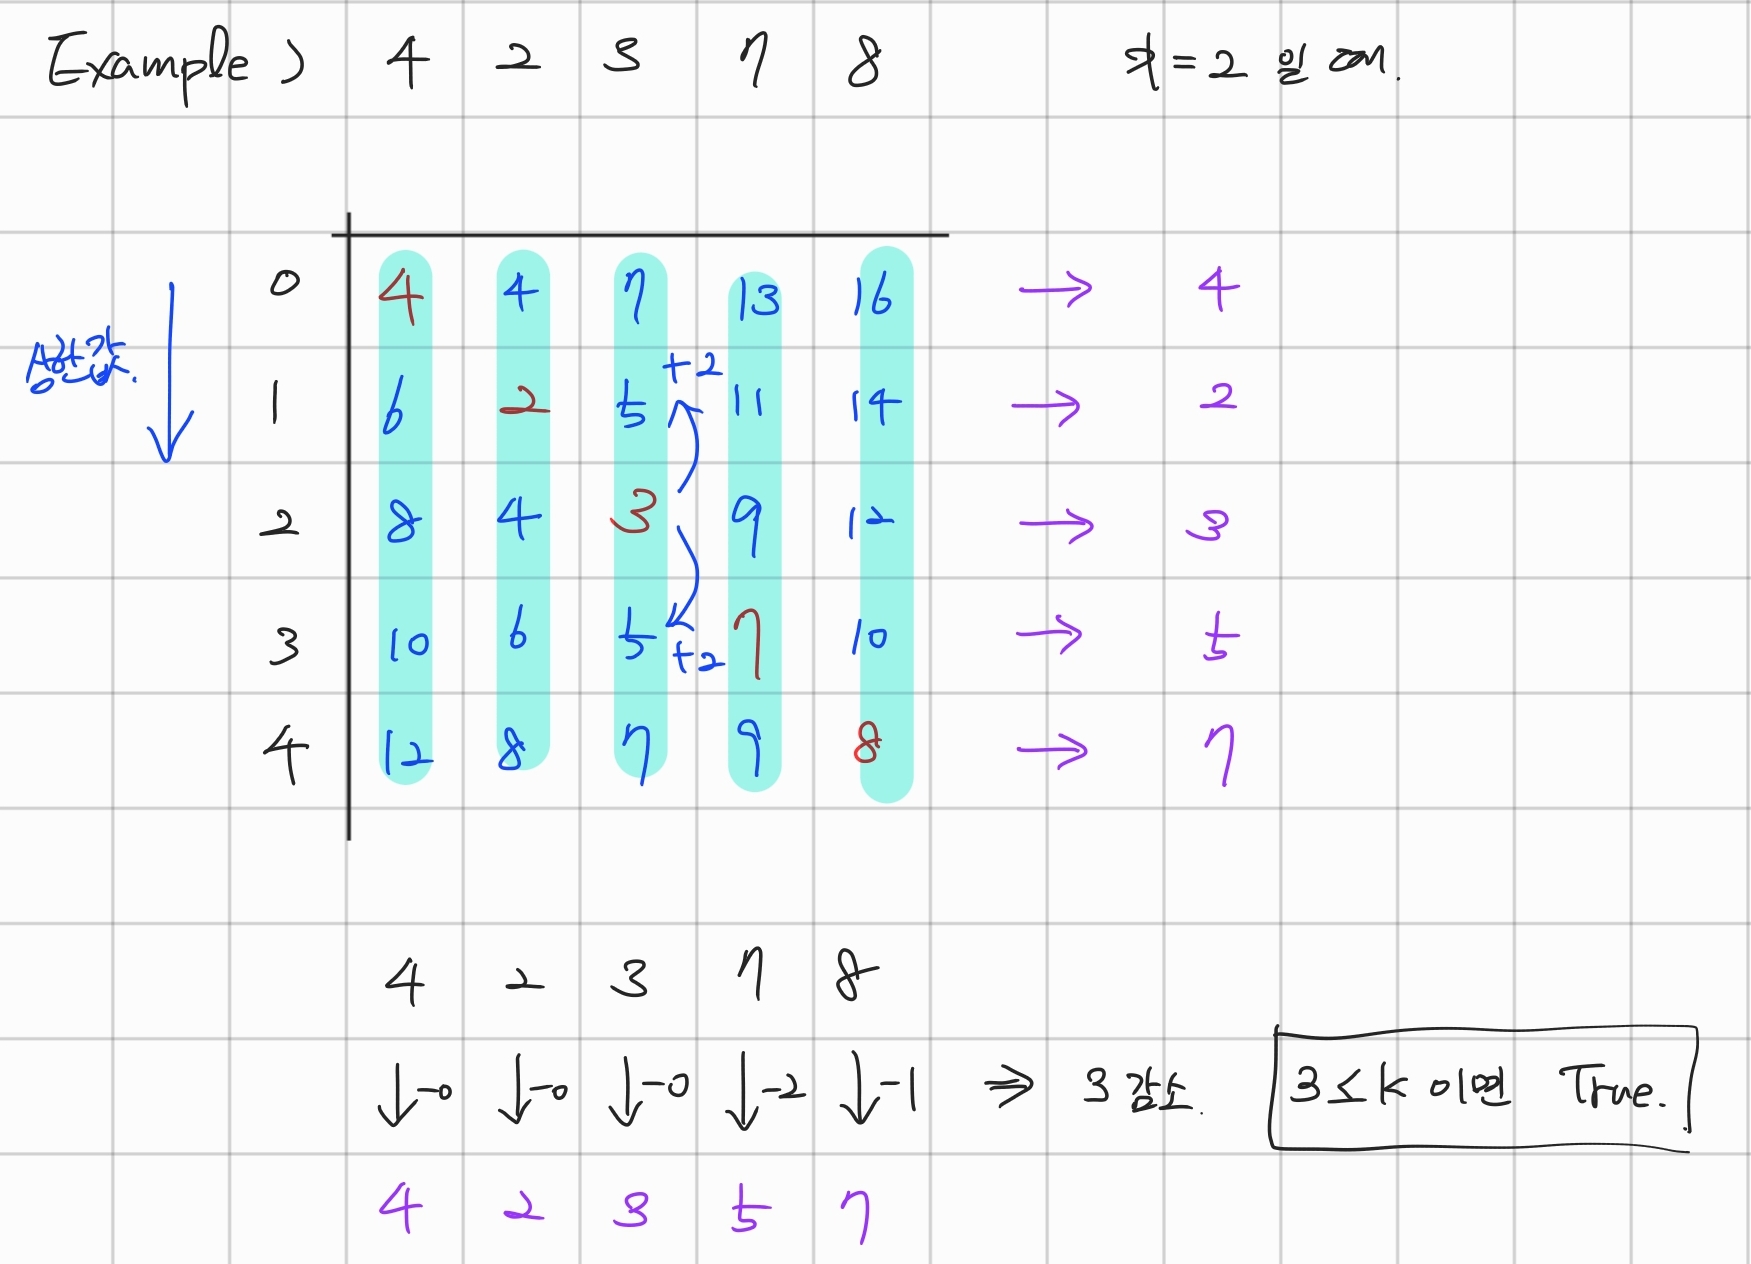 Example) 4 2 3 7 8 차=2 일 때.
0 4 4 7 13 16 → 4
상한값.
+2
1 6 2 5 11 14 → 2
2 8 4 3 9 12 → 3
3 10 6 5 7 10 → 5
+2
4 12 8 7 9 8 → 7
4 2 3 7 8
↓-0 ↓-0 ↓-0 ↓-2 ↓-1 ⇒ 3 감소. 3≤k 이면 True.
4 2 3 5 7